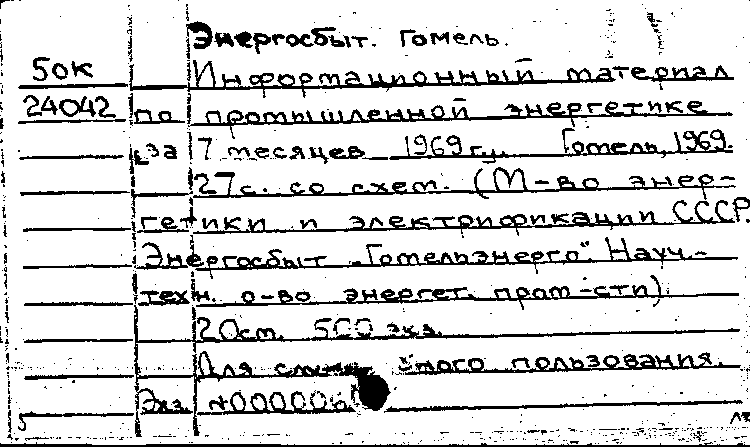 Энергосбыт. Гомель.
50к Информационный материал
24042 по промышленной энергетике
за 7 месяцев 1969 г. Гомель, 1969.
27с. со схем. (М-во энер-
гетики и электрификации СССР.
Энергосбыт "Гомельэнерго". Науч.-
техн. о-во энергет. пром-сти).
20см. 500 экз.
Для пользования.
Экз.